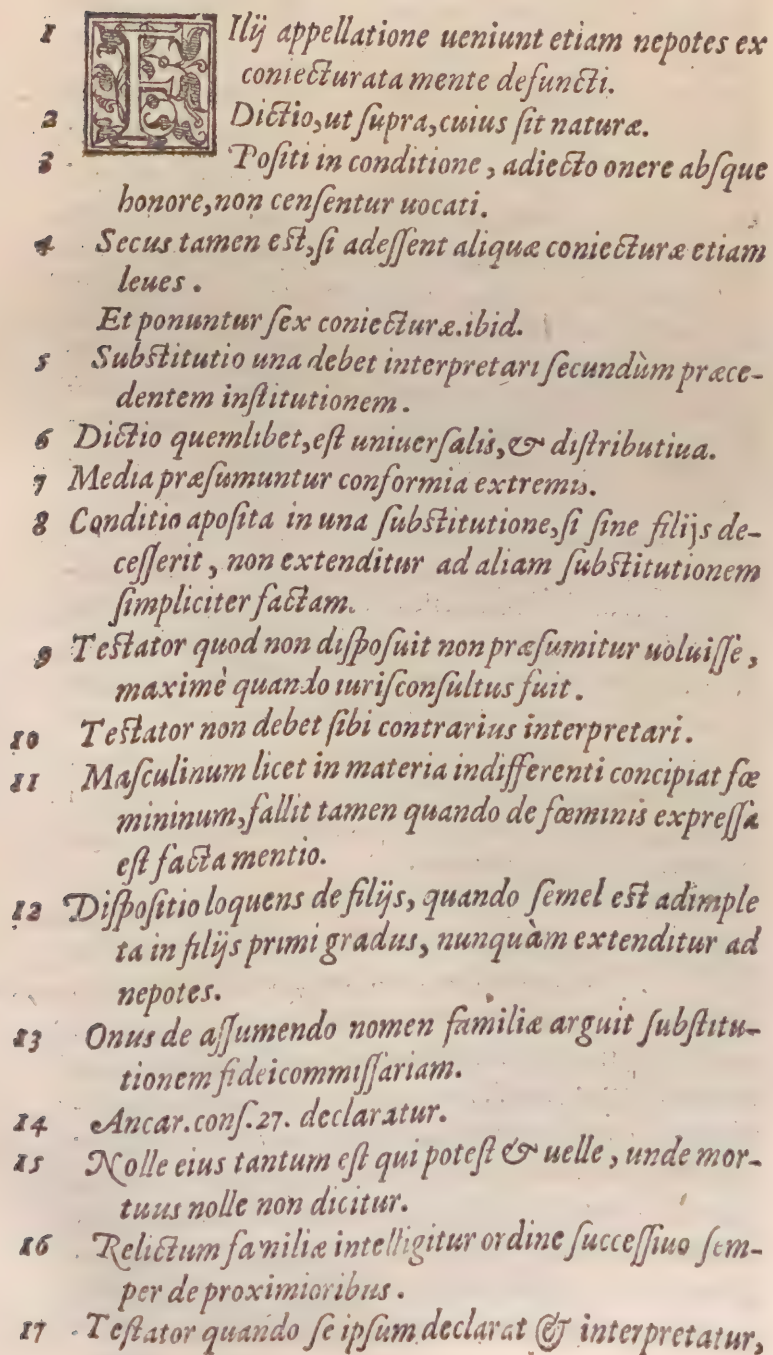 1 FIlij appellatione ueniunt etiam nepotes ex
coniecturata mente defuncti.
2 Dictio, ut supra, cuius sit naturæ.
3 Positi in conditione, adiecto onere absque
honore, non censentur uocati.
4 Secus tamen est, si adessent aliquæ coniecturæ etiam
leues.
Et ponuntur sex coniecturæ. ibid.
5 Substitutio una debet interpretari secundùm præce-
dentem institutionem.
6 Dictio quemlibet, est uniuersalis, & distributiua.
7 Media præsumuntur conformia extremis.
8 Conditio aposita in una substitutione, si sine filijs de-
cesserit, non extenditur ad aliam substitutionem
simpliciter factam.
9 Testator quod non disposuit non præsumitur uoluissè,
maximè quando iurisconsultus fuit.
10 Testator non debet sibi contrarius interpretari.
11 Masculinum licet in materia indifferenti concipiat fœ
mininum, fallit tamen quando de fœminis expressa
est facta mentio.
12 Dispositio loquens de filijs, quando semel est adimple
ta in filijs primi gradus, nunquàm extenditur ad
nepotes.
13 Onus de assumendo nomen familiæ arguit substitu-
tionem fideicommissariam.
14 Ancar. cons. 27. declaratur.
15 Nolle eius tantum est qui potest & uelle, unde mor-
tuus nolle non dicitur.
16 Relictum familiæ intelligitur ordine successiuo sem-
per de proximioribus.
17 Testator quando se ipsum declarat & interpretatur,